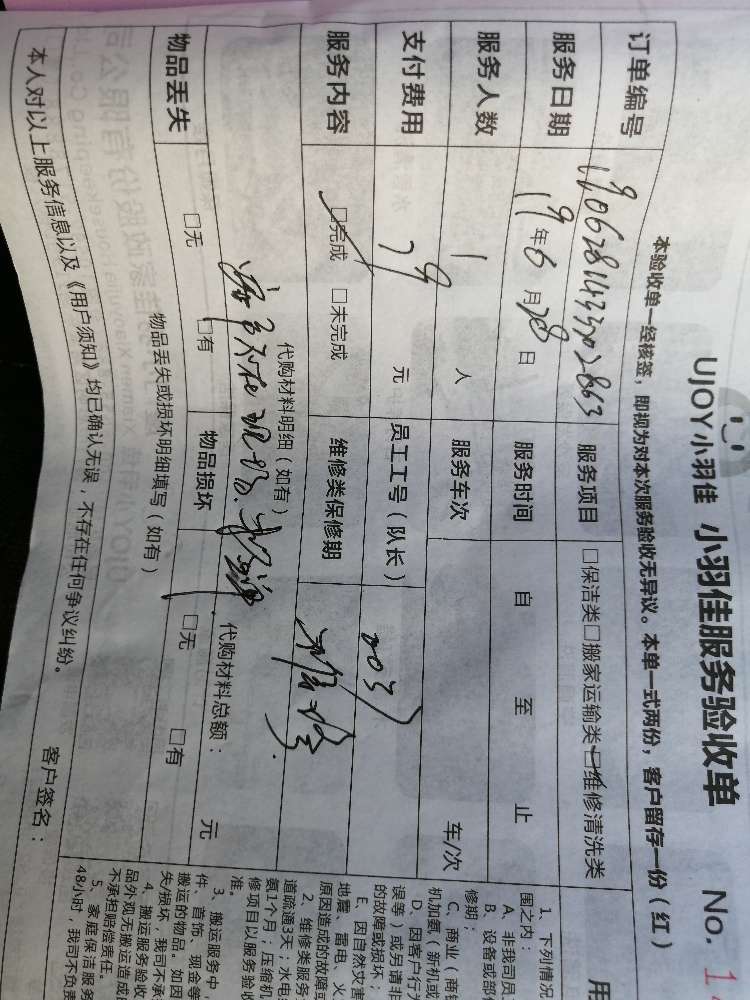 UJOY小羽佳 小羽佳服务验收单 No. 1
本验收单一经核签，即视为对本次服务验收无异议。本单一式两份，客户留存一份（红）
订单编号 服务项目 □保洁类□搬家运输类□维修清洗类
服务日期 19年6月28日 服务时间 自 至 止
服务人数 1 人 服务车次 车/次
支付费用 元 员工工号（队长） 2037
服务内容 □完成 □未完成 维修类保修期
代购材料明细（如有）
代购材料总额： 元
物品丢失 □无 □有 物品损坏 □无 □有
物品丢失或损坏明细填写（如有）
本人对以上服务信息以及《用户须知》均已确认无误，不存在任何争议纠纷。 客户签名：
用
1、下列情况
围之内：
A、非我司员
B、设备或部
修期；
C、商业（商
机加氨（新机或
D、因客户行
误等）或另请非
的故障或损坏；
E、因自然灾害
地震、雷电、火
原因造成的故障或
2、维修类服务
道疏通3天；水电
氨1个月；压缩机
修项目以服务验收
准。
3、搬运服务中，
件、首饰、现金等
搬运的物品。如因
失/损坏，我司不承
4、搬运服务验收
品外观无搬运造成
不承担赔偿责任。
5、家庭保洁服务
48小时，我司不负责